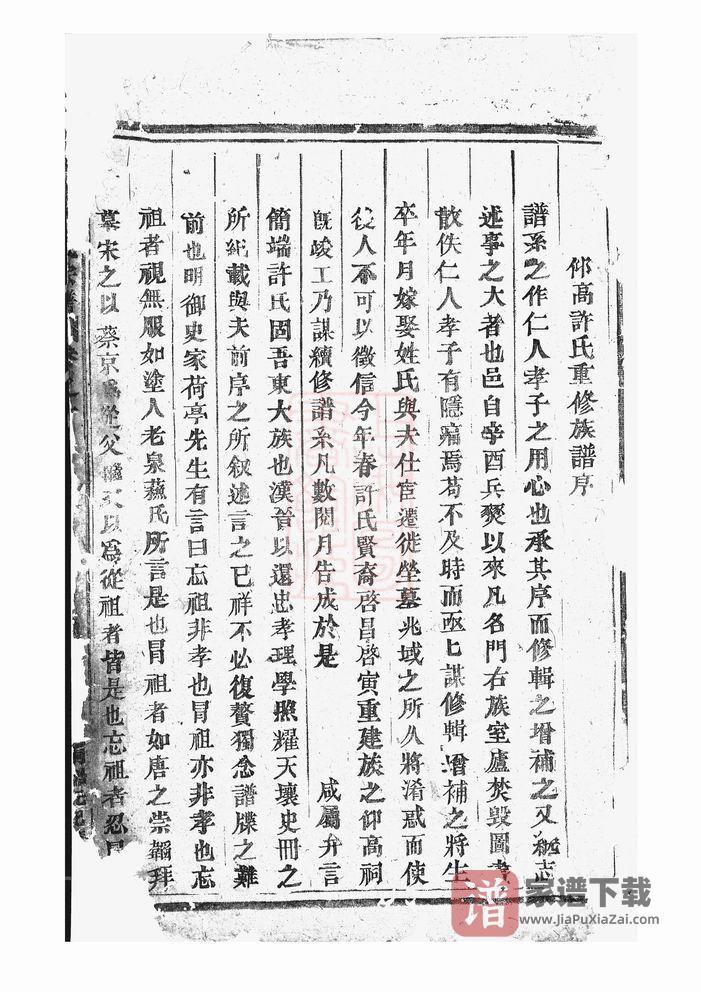 仰高許氏重修族譜序
譜系之作仁人孝子之用心也承其序而修輯之增補之又繼志
述事之大者也邑自辛酉兵燹以來凡名門右族室廬焚毀圖書
散佚仁人孝子有隱痛焉苟不及時而亟亟謀修輯增補之將生
卒年月嫁娶姓氏與夫仕宦遷徙坐墓兆域之所久將淆惑而使
後人不可以徵信今年春許氏賢裔啓昌啓寅重建族之仰高祠
旣竣工乃謀續修譜系凡數閱月告成於是 咸屬弁言
簡端許氏固吾東大族也漢晉以還忠孝理學照耀天壤史冊之
所紀載與夫前序之所叙述言之已祥不必復贅獨念譜牒之難
前也明御史家荷亭先生有言曰忘祖非孝也冒祖亦非孝也忘
祖者視無服如塗人老泉蘇氏所言是也冒祖者如唐之崇韜拜
墓宋之以蔡京爲從父 又以爲從祖者皆是也忘祖者忍
譜
家谱下载
www.JiaPuXiaZai.com